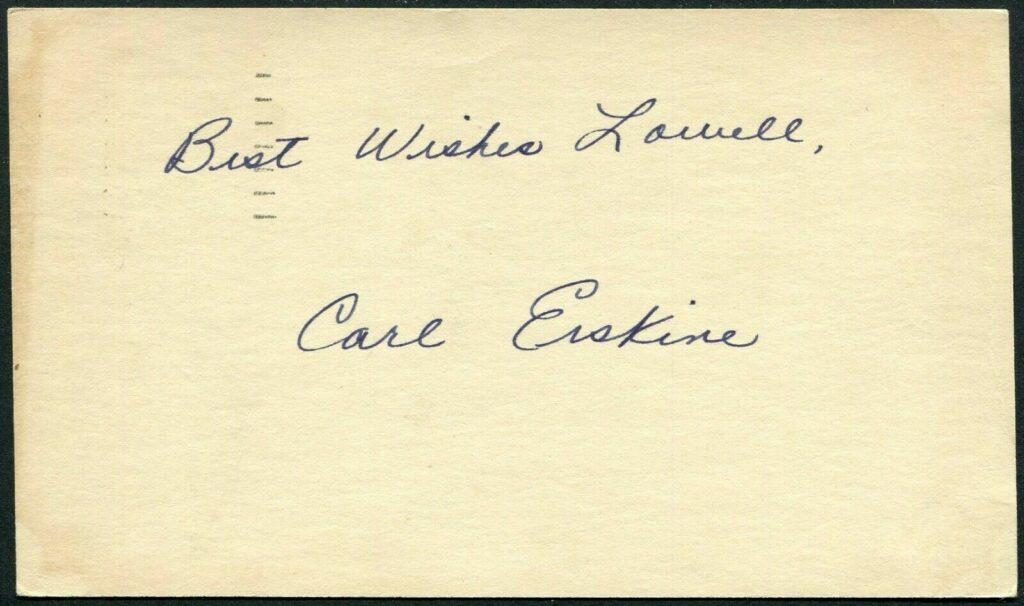 Best Wishes Lowell,
Carl Erskine